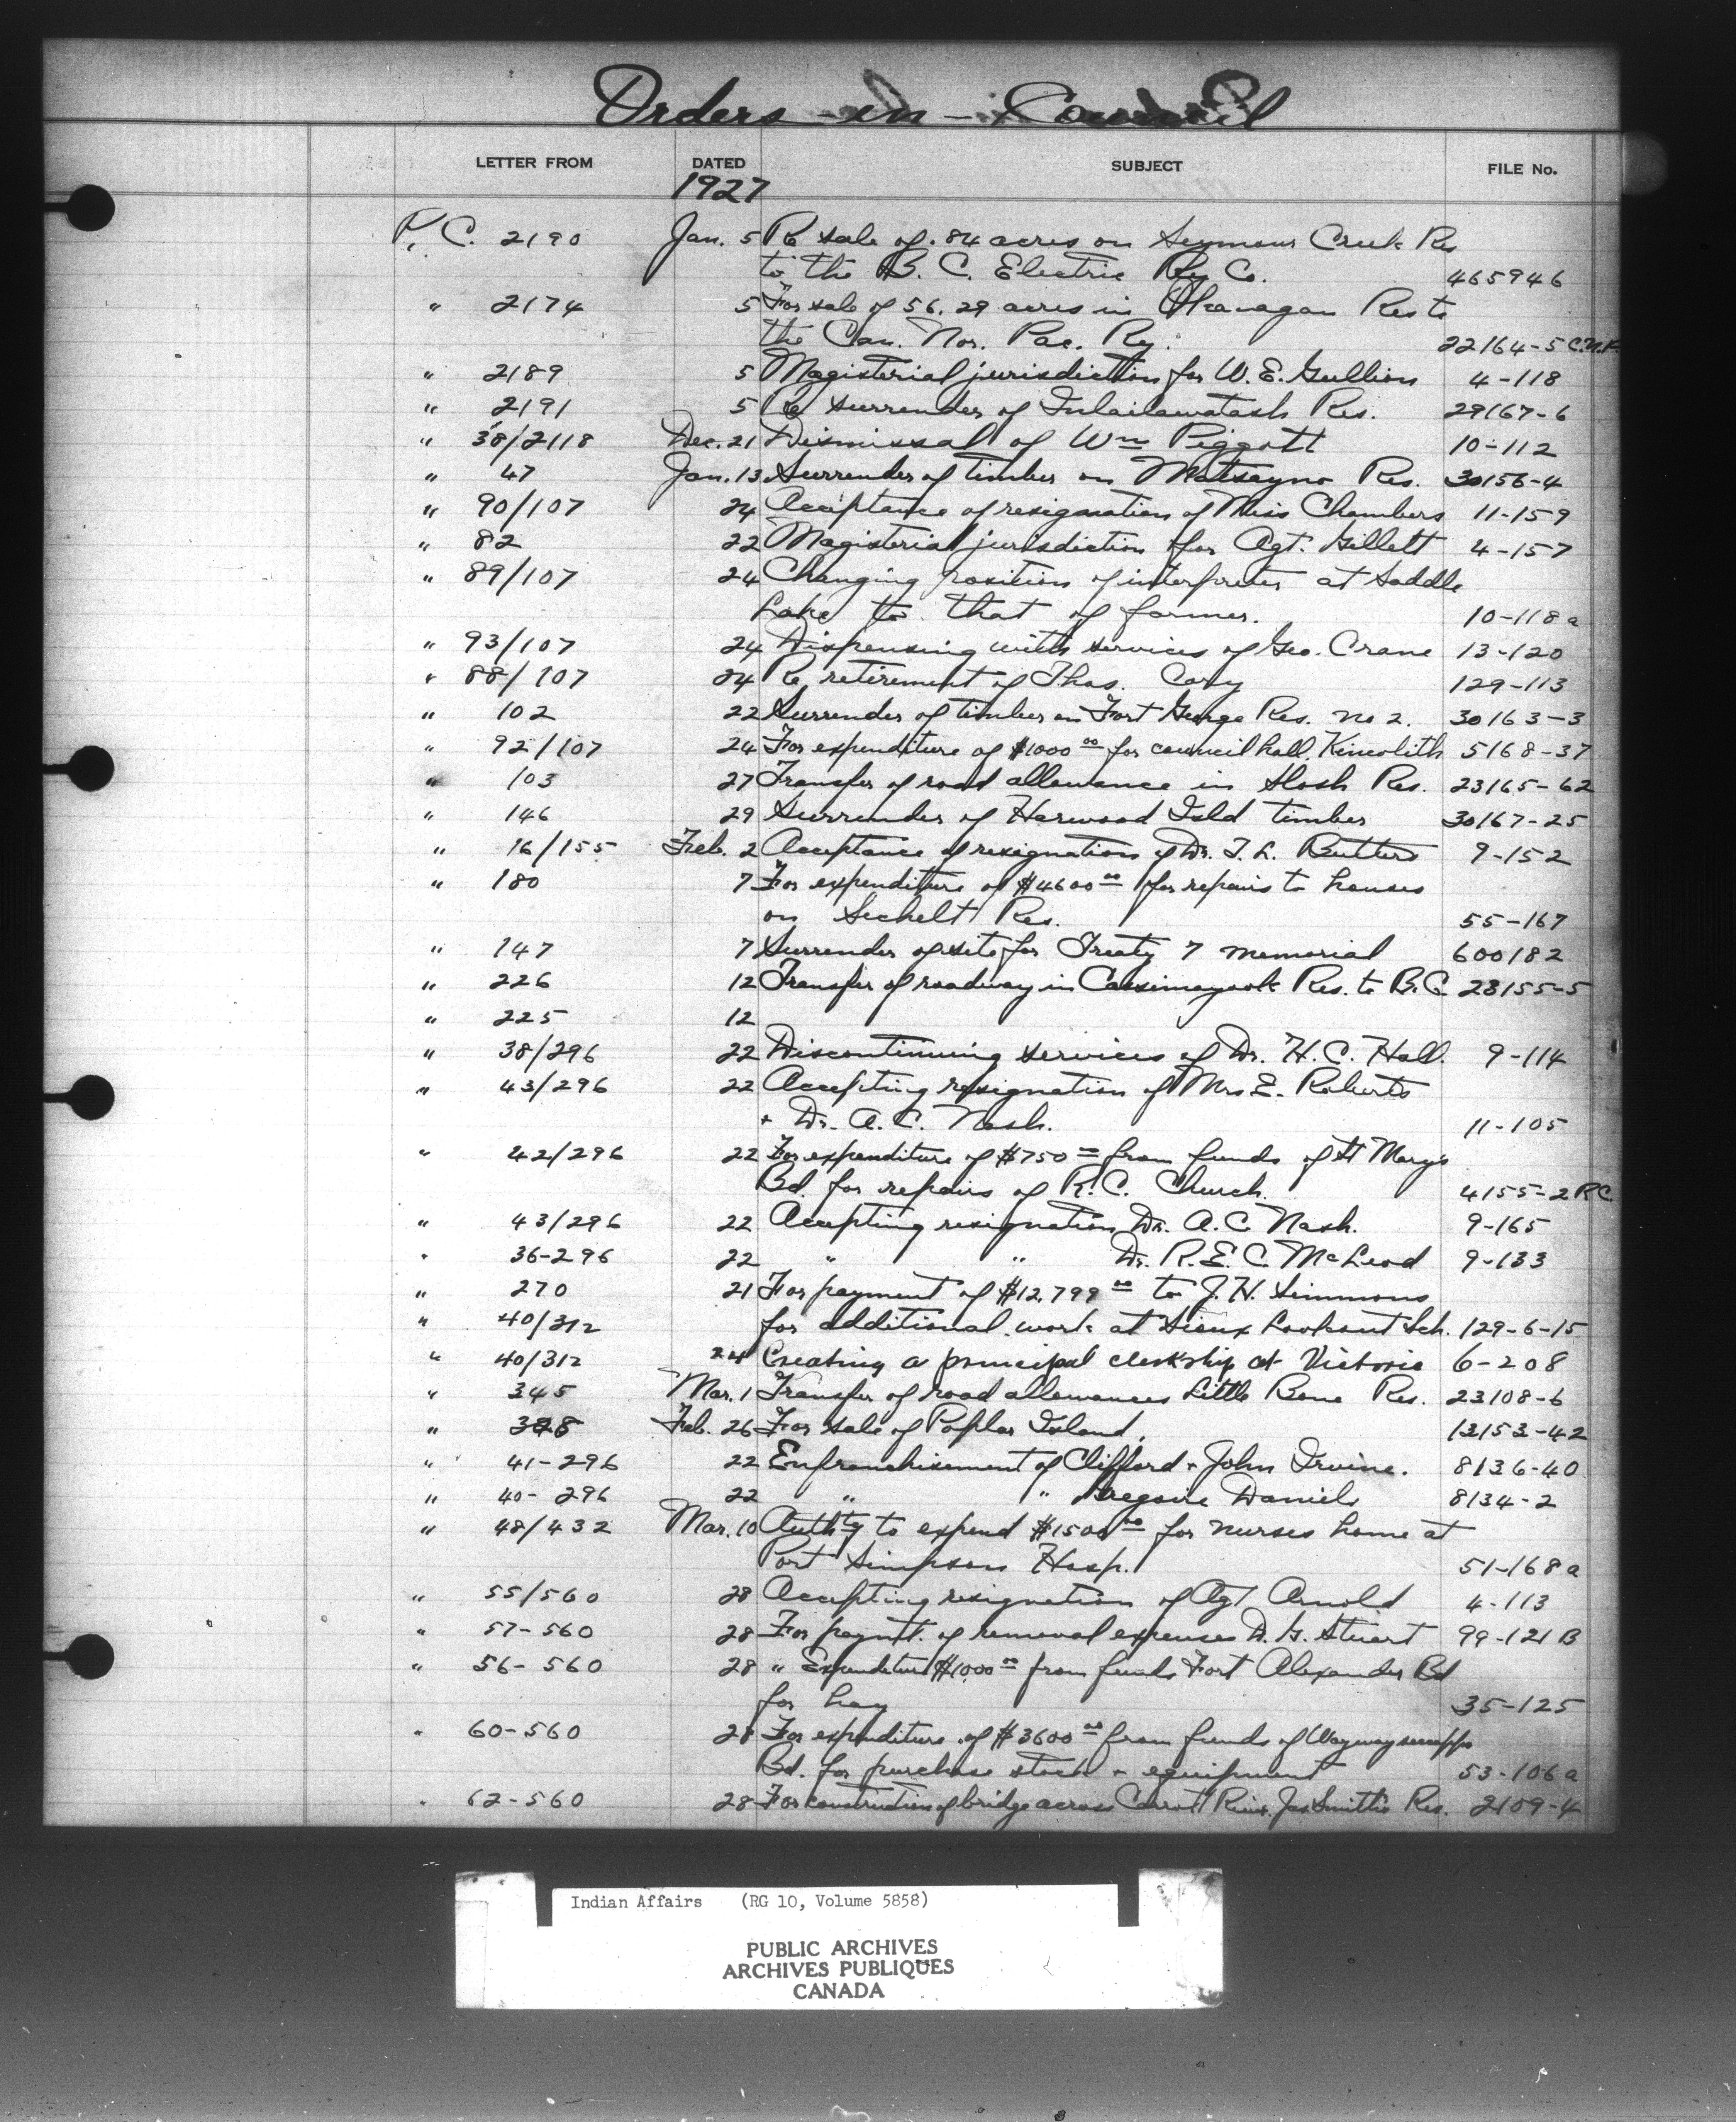 Orders-in-Council
LETTER FROM DATED SUBJECT FILE No.
1927
P. C. 2190 Jan. 5 Re sale of .84 acres on Seymour Creek Res
to the B. C. Electric Ry Co. 465946
" 2174 5 For sale of 56.29 acres in Okanagan Res to
the Can. Nor. Pac. Ry. 22164-5 C.N.P.
" 2189 5 Magisterial jurisdiction for W. E. Gullion 4-118
" 2191 5 Re surrender of Res. 29167-6
" 38/2118 Dec. 21 Dismissal of Wm Piggott 10-112
" 47 Jan. 13 Surrender of timber on Matsayno Res. 30156-4
" 90/107 24 Acceptance of resignation of Miss Chambers 11-159
" 82 22 Magisterial jurisdiction for Agt. Gillett 4-157
" 89/107 24 Changing position of interpreter at Saddle
Lake to that of farmer. 10-118a
" 93/107 24 Dispensing with services of Geo. Crane 13-120
" 88/107 24 Re retirement of Thos. Cory 129-113
" 102 22 Surrender of timber on Fort George Res. no 2. 30163-3
" 92/107 24 For expenditure of $1000 00 for council hall, Kincolith 5168-37
" 103 27 Transfer of road allowance in Slosh Res. 23165-62
" 146 29 Surrender of Harwood Isld timber 30167-25
" 16/155 Feb. 2 Acceptance of resignation of Dr. T. L. Butters 9-152
" 180 7 For expenditure of $4600 00 for repairs to houses
on Sechelt Res. 55-167
" 147 7 Surrender of site for Treaty 7 memorial 600182
" 226 12 Transfer of roadway in Cassimayook Res. to B.C. 23155-5
" 225 12
" 38/296 22 Discontinuing services of Dr. H. C. Hall. 9-114
" 43/296 22 Accepting resignation of Mrs E. Roberts
+ Dr. A. C. Nash. 11-105
" 42/296 22 For expenditure of $750 00 from funds of St Mary's
Bd. for repairs of R. C. Church. 4155-2 RC.
" 43/296 22 Accepting resignation Dr. A. C. Nash. 9-165
" 36-296 22 " " Dr. R. E. C. McLeod 9-133
" 270 21 For payment of $12,799 00 to J. H. Simmons
" 40/312 for additional work at Sioux Lookout Sch. 129-6-15
" 40/312 24 Creating a principal clerkship at Victoria 6-208
" 345 Mar. 1 Transfer of road allowances Little Bone Res. 23108-6
" Feb. 26 For sale of Poplar Island. 13153-42
" 41-296 22 Enfranchisement of Clifford + John Irvine. 8136-40
" 40-296 22 " " Gregoire Daniels 8134-2
" 48/432 Mar. 10 Authty to expend $1500 00 for nurses home at
Port Simpson Hosp. 51-168a
" 55/560 28 Accepting resignation of Agt Arnold 4-113
" 57-560 28 For paymt. of removal expenses D. G. Stuart 99-121 B
" 56-560 28 " Expenditure $1000 00 from funds Fort Alexander Bd
for hay 35-125
" 60-560 28 For expenditure of $3600 00 from funds of Waywayseecappo
Bd. for purchase stock + equipment 53-106a
" 62-560 28 For construction of bridge across Carrot River, Jas Smith's Res. 2109-4
Indian Affairs (RG 10, Volume 5858)
PUBLIC ARCHIVES
ARCHIVES PUBLIQUES
CANADA